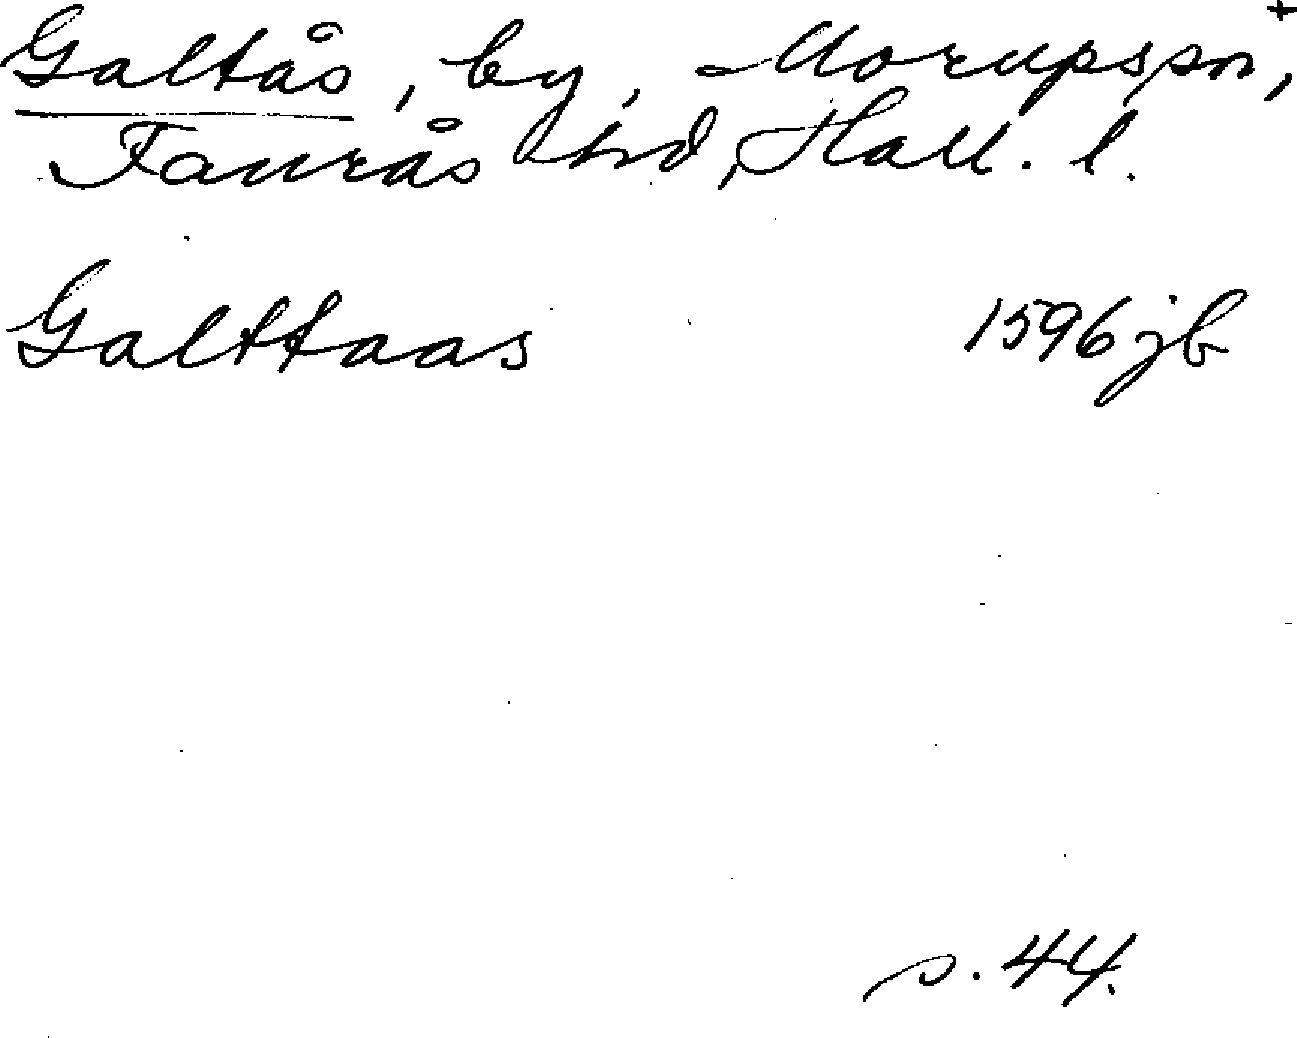 Galtås, by, Morups sn, +
Faurås hd, Hall. l.
Galttaas 1596 jb
s. 44.